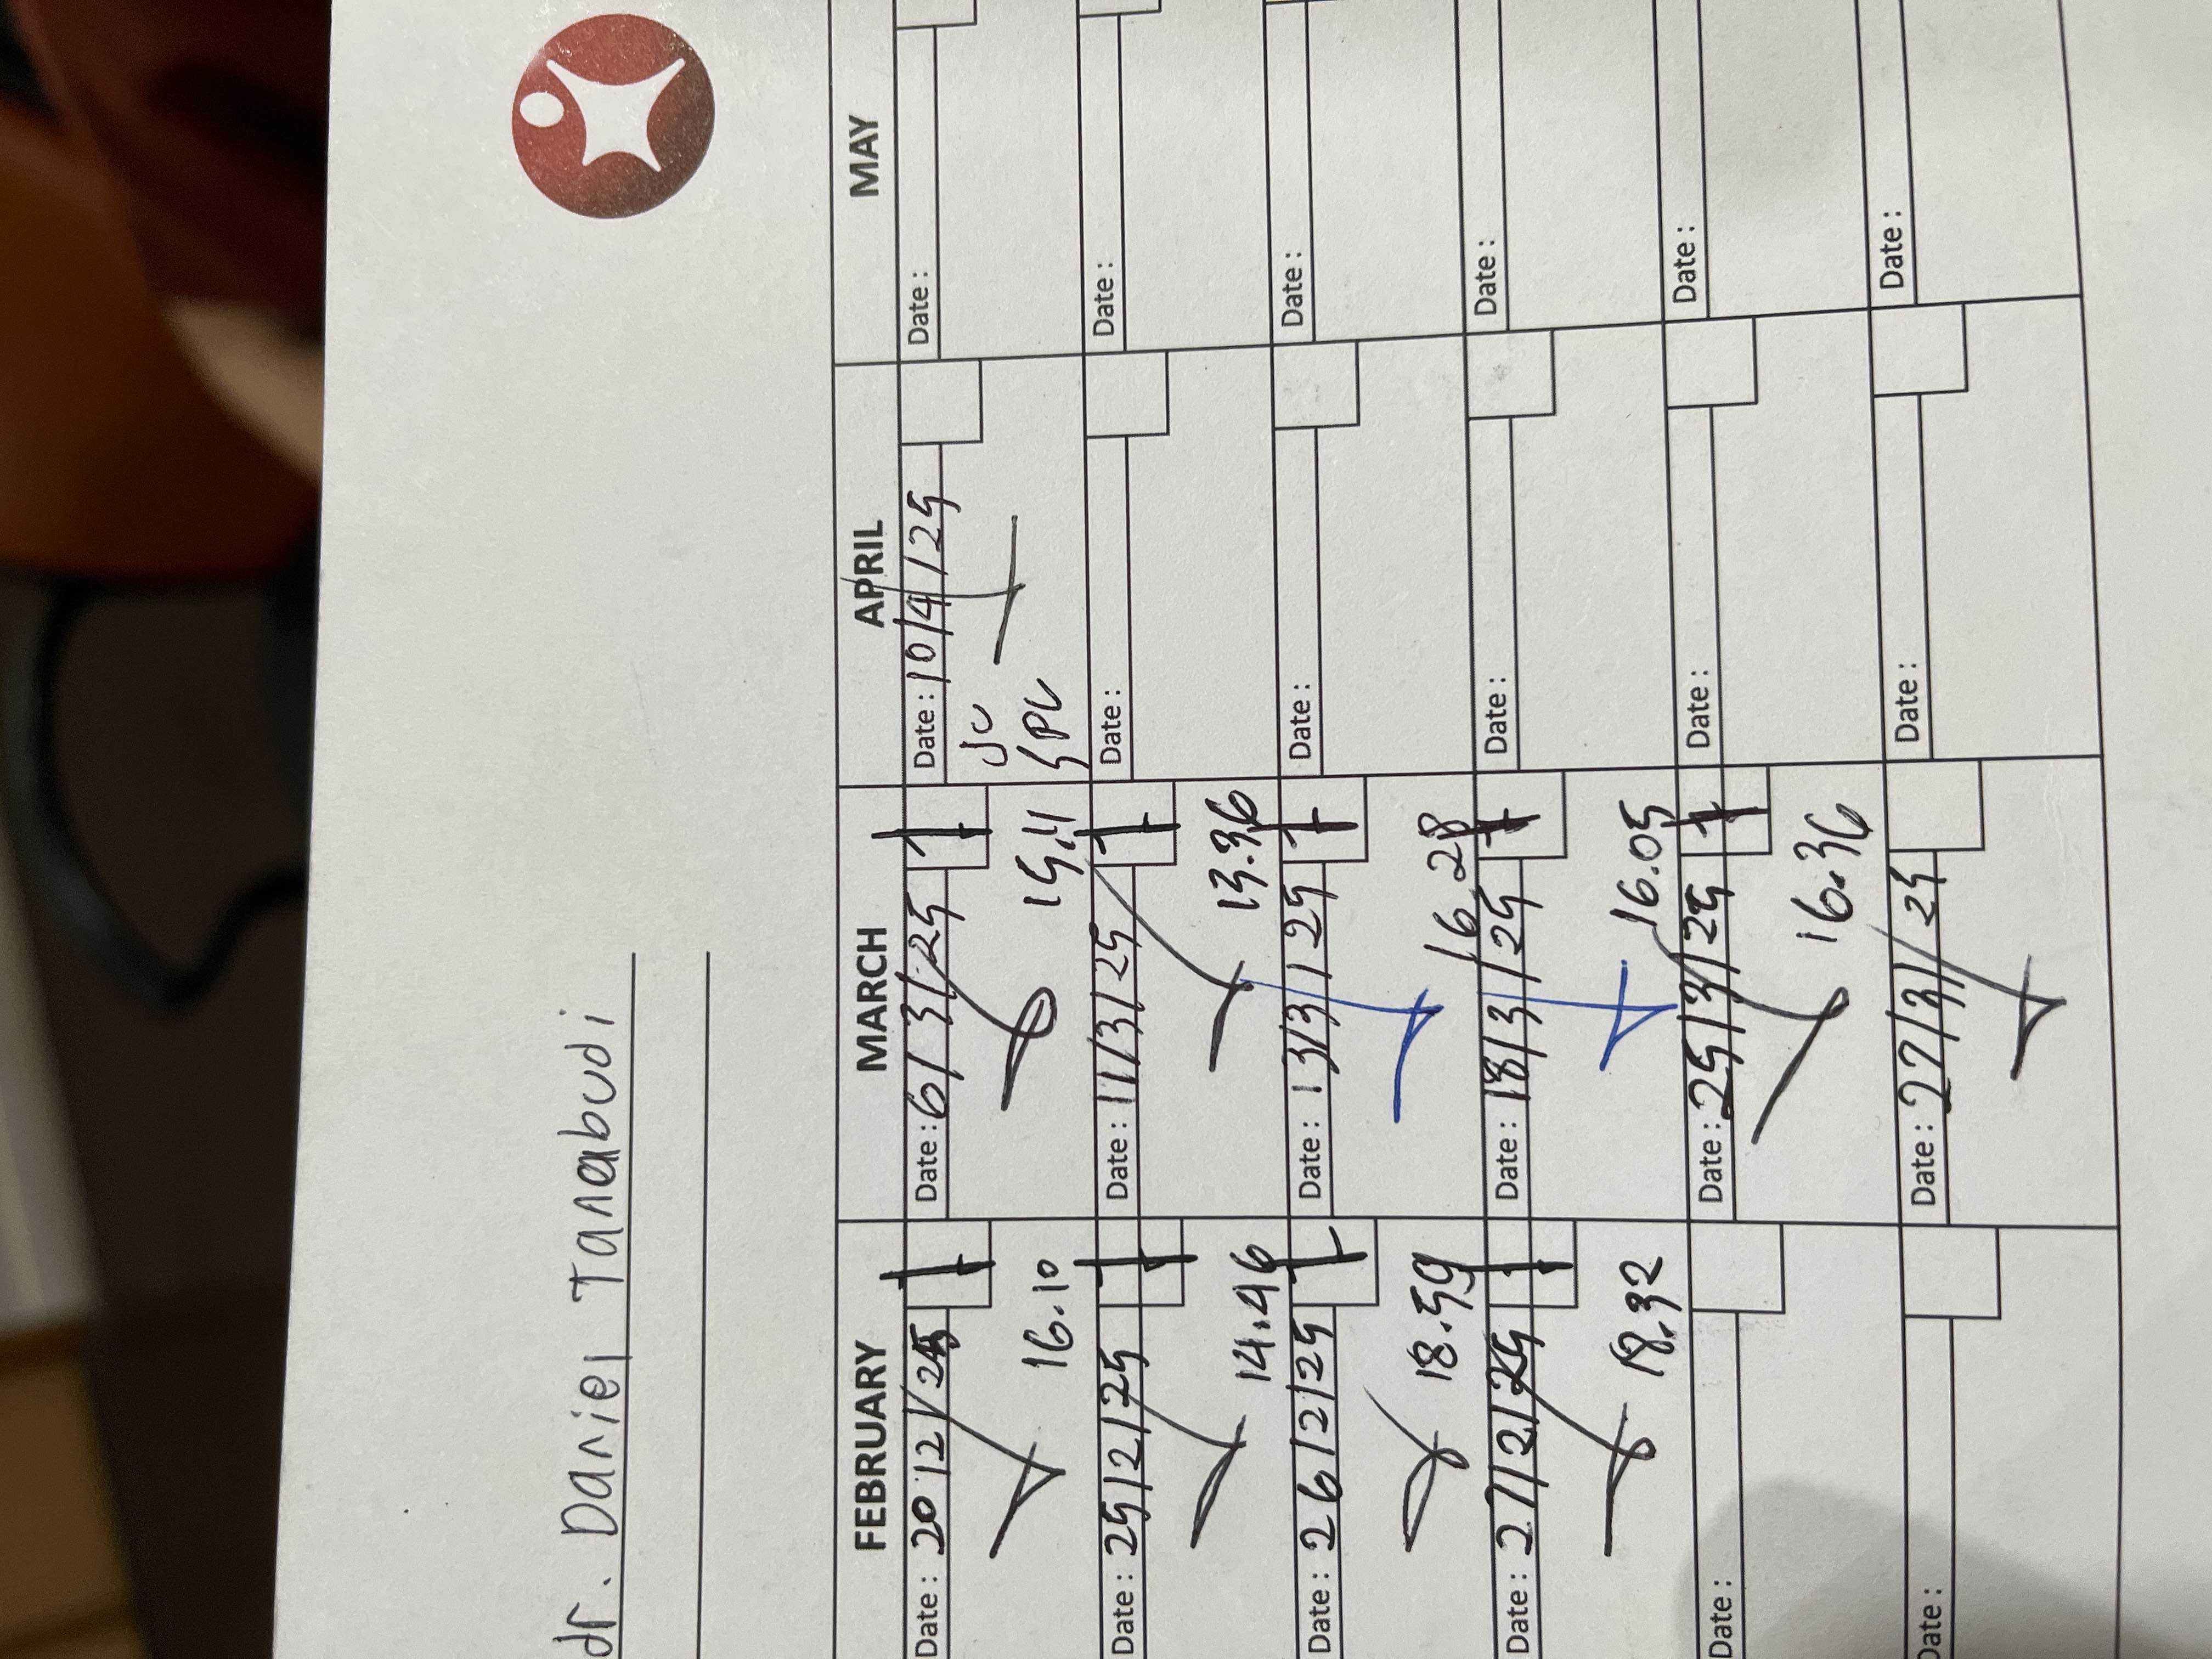 dr. Daniel Tanabudi
FEBRUARY MARCH APRIL MAY
Date : 20/2/25 1 Date : 6/3/25 1 Date : 10/4/25 Date :
16.10 15.11 JC
SPC
Date : 25/2/25 1 Date : 11/3/25 1 Date : Date :
14.46 13.36
Date : 26/2/25 1 Date : 13/3/25 1 Date : Date :
18.59 16.28
Date : 27/2/25 1 Date : 18/3/25 1 Date : Date :
18.32 16.05
Date : Date : 25/3/25 1 Date : Date :
16.36
Date : Date : 27/3/25 Date : Date :